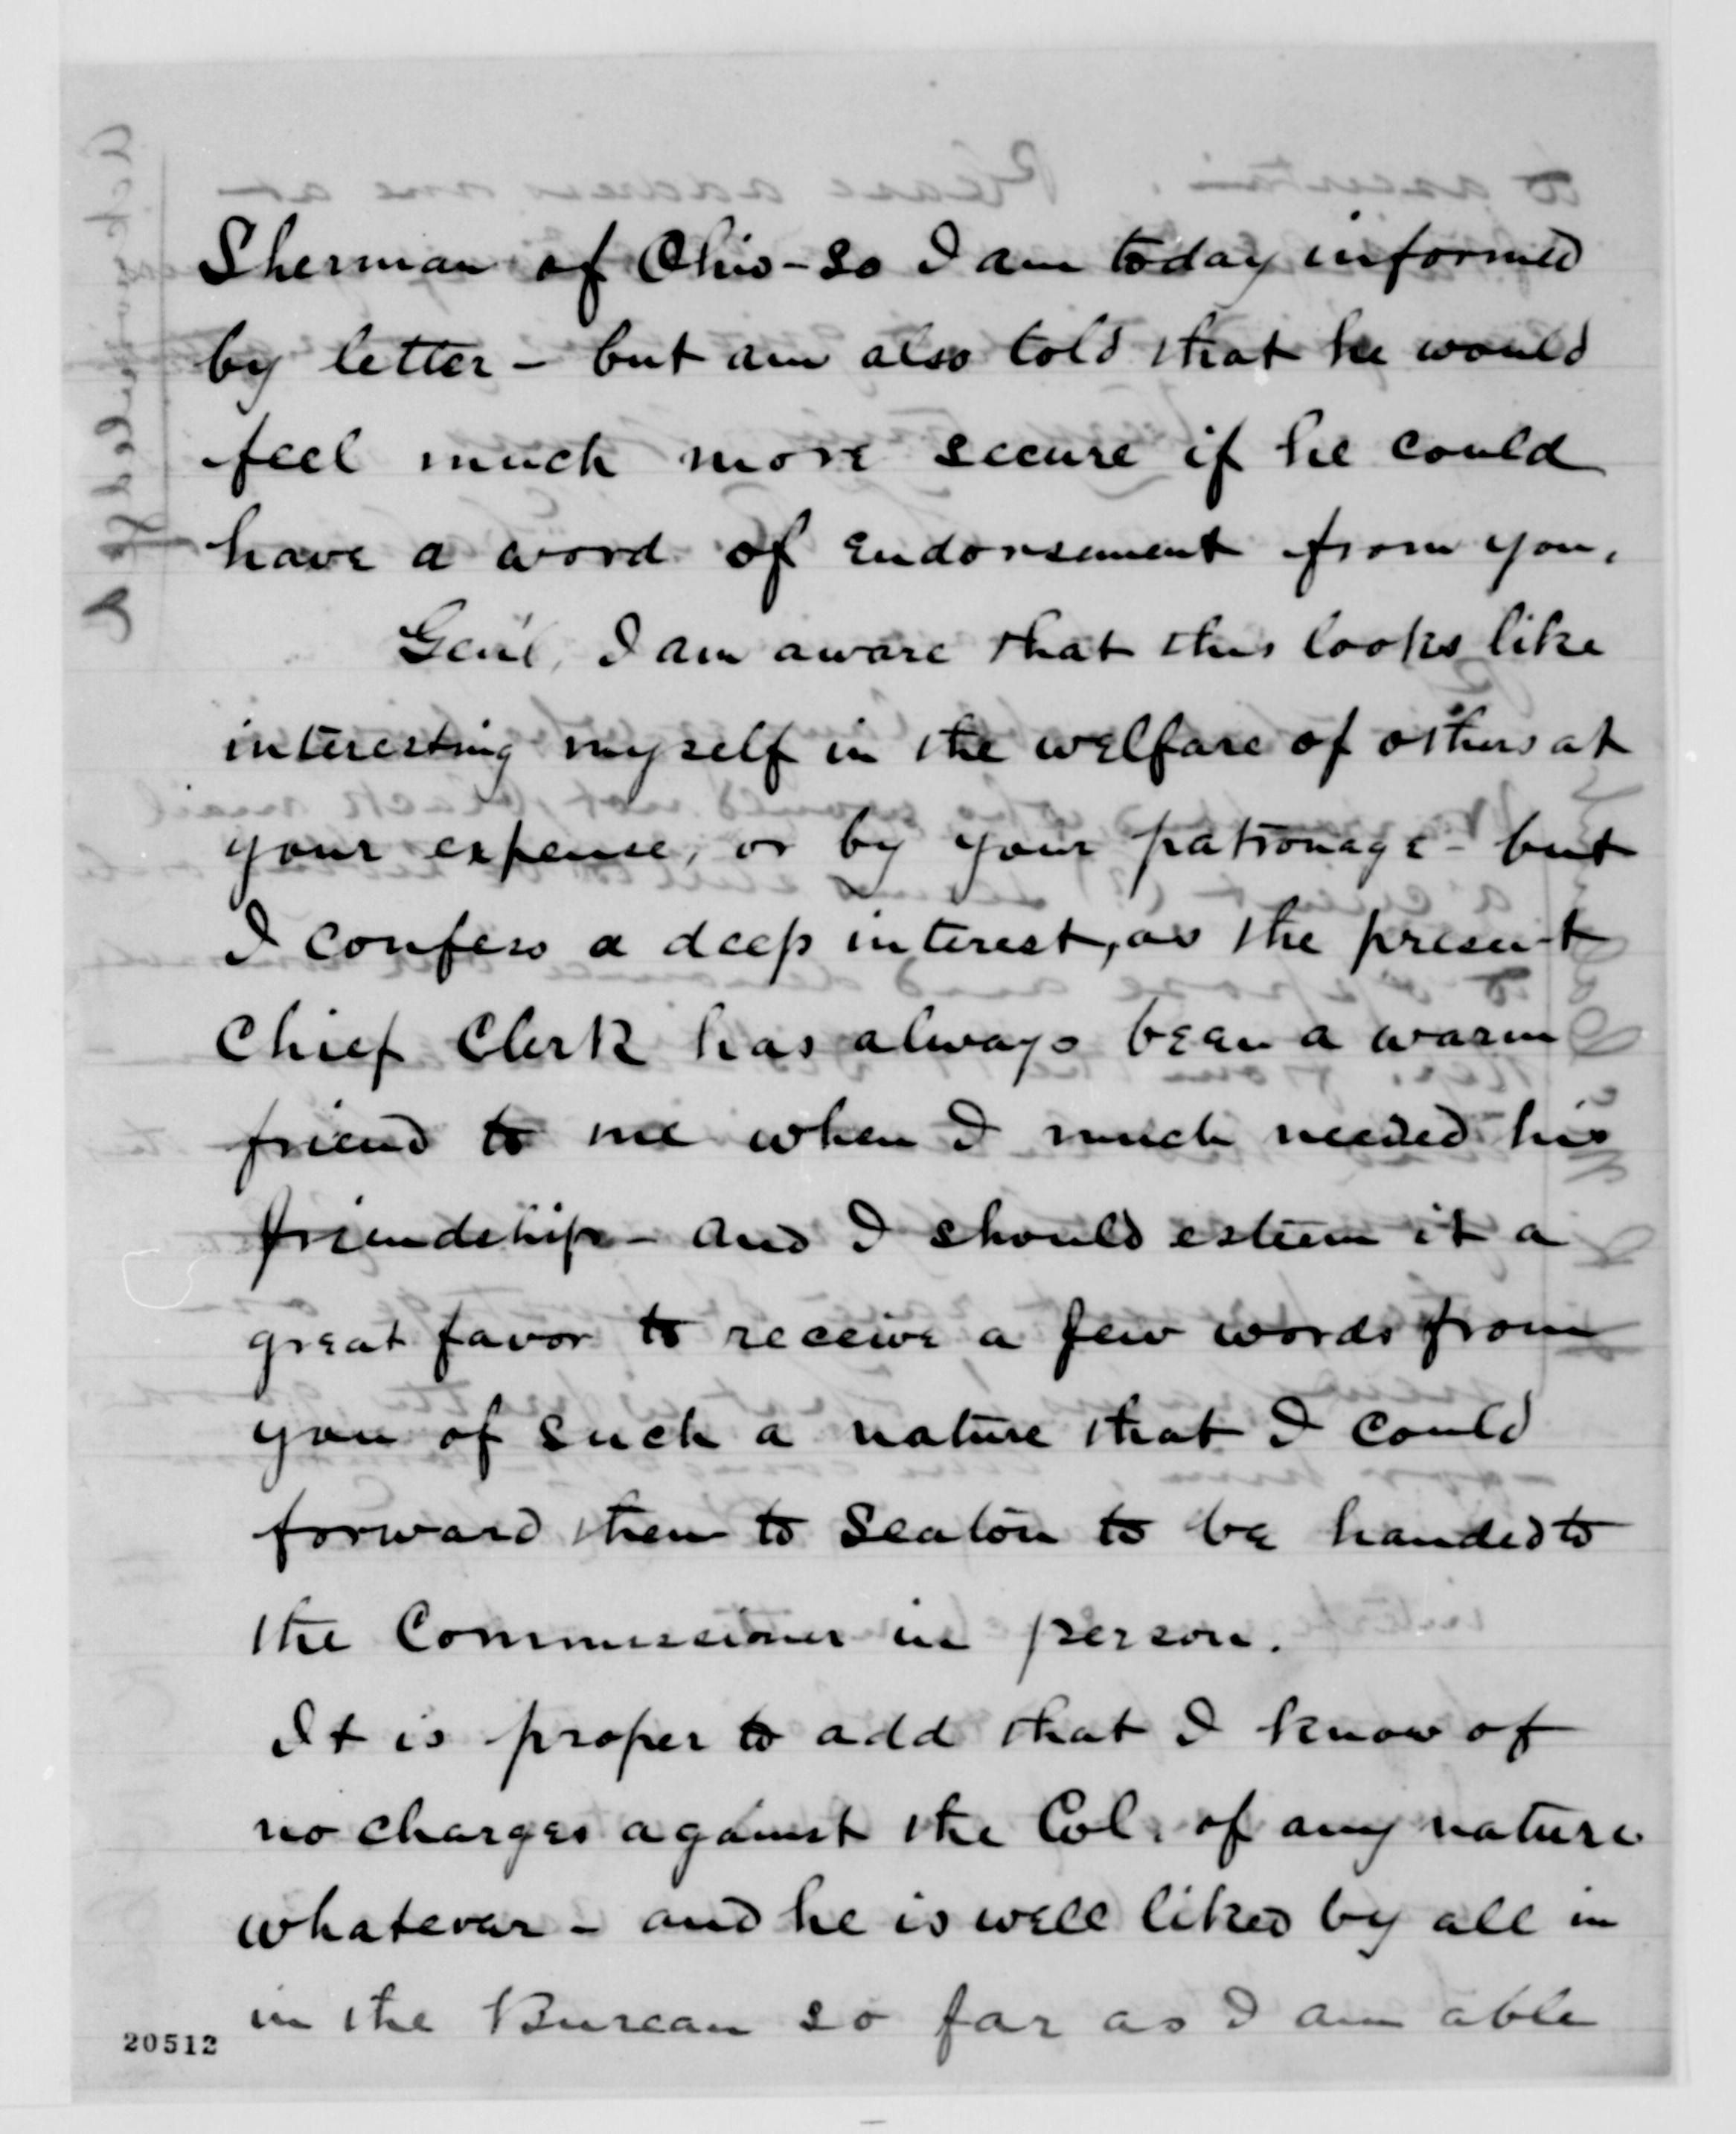 Sherman of Ohio - so I am today informed
by letter - but am also told that he would
feel much more secure if he could
have a word of endorsement from you.
Gen'l, I am aware that this looks like
interesting myself in the welfare of others at
your expense, or by your patronage - but
I confess a deep interest, as the present
Chief Clerk has always been a warm
friend to me when I much needed his
friendship - and I should esteem it a
great favor to receive a few words from
you of such a nature that I could
forward them to Seaton to be handed to
the Commissioner in person.
It is proper to add that I know of
no charges against the Col. of any nature
whatever - and he is well liked by all in
in the Bureau so far as I am able
20512